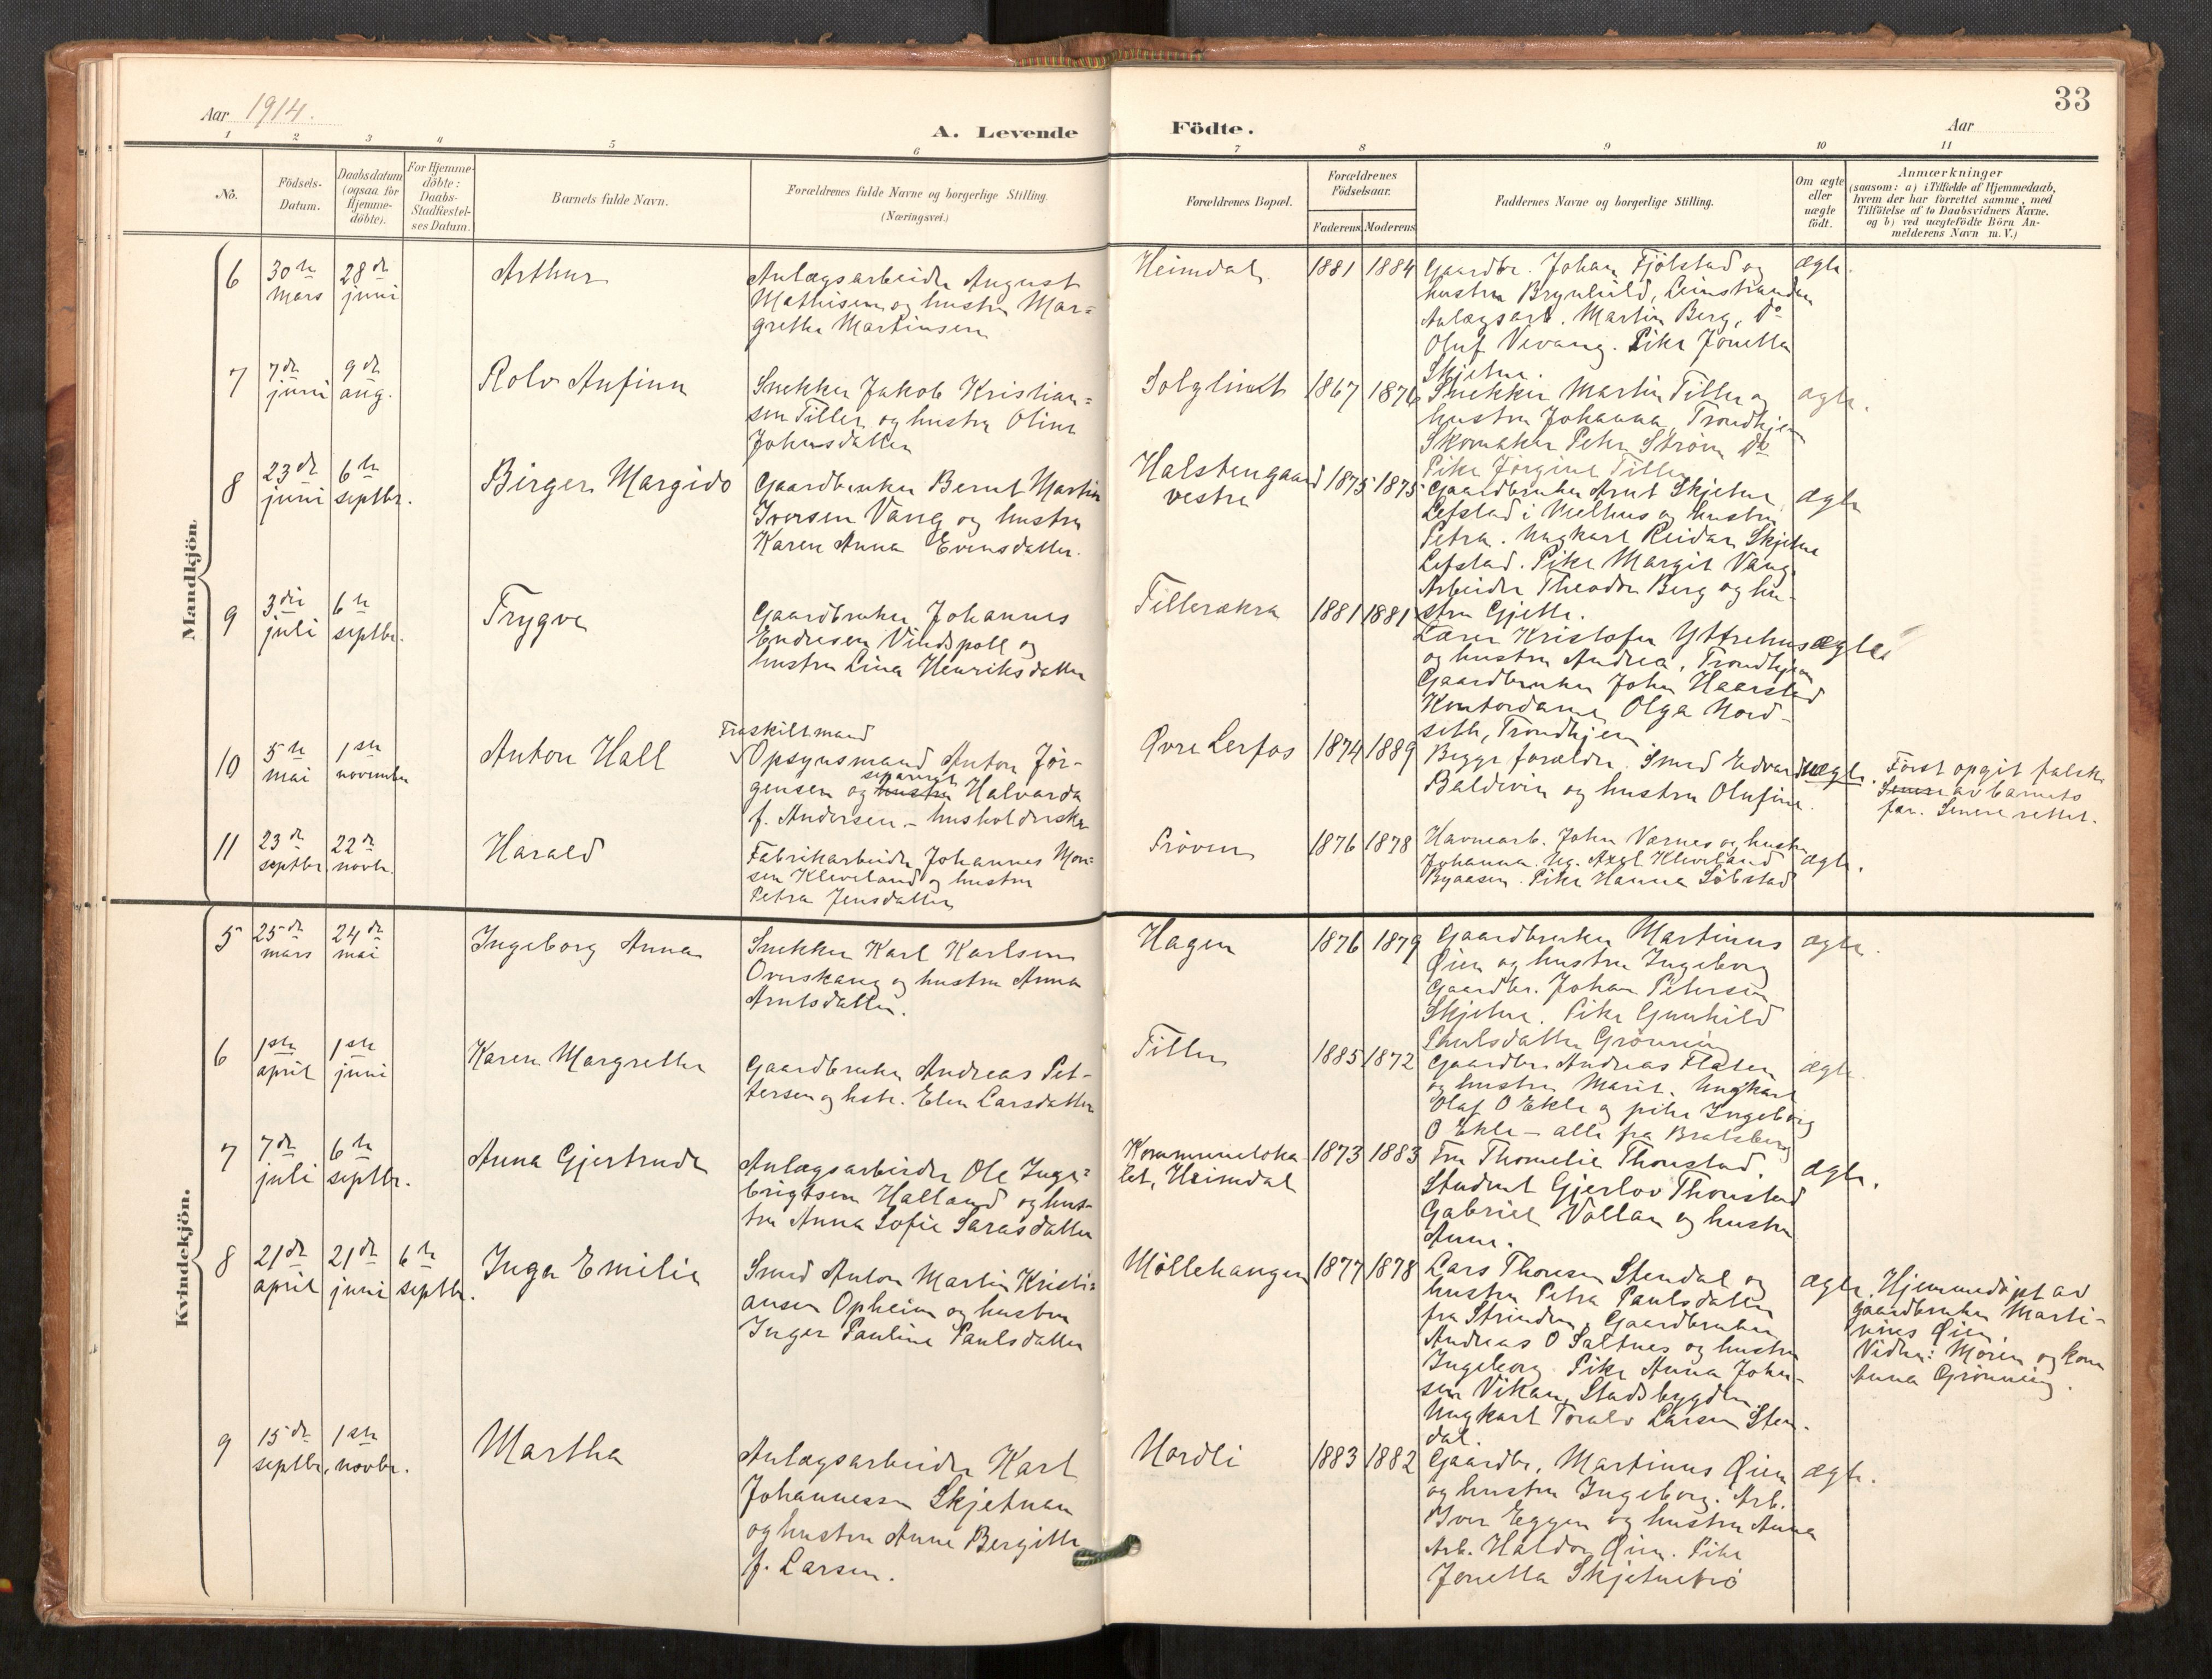 33
Aar 1914.
A. Levende Födte.
Aar
1 2 3 4 5 6 7 8 9 10 11
No.
Födsels-
Datum.
Daabsdatum
(ogsaa for
Hjemme-
döbte).
For Hjemme-
döbte:
Daabs-
Stadfæstel-
ses Datum.
Barnets fulde Navn.
Forældrenes fulde Navne og borgerlige Stilling.
(Næringsvei.)
Forældrenes Bopæl.
Forældrenes
Födselsaar.
Faderens
Moderens
Faddernes Navne og borgerlige Stilling.
Om ægte
eller
uægte
födt.
Anmærkninger
(saasom: a) i Tilfælde af Hjemmedaab,
hvem der har forrettet samme, med
Tilföielse af to Daabsvidners Navne.
og b) ved uægtefödte Börn An-
melderens Navn m. V.)
Mandkjön.
6
30te
mars
28de
juni
Arthur
Anlægsarbeider August
Mathisen og hustru Mar=
grethe Martinsen
Heimdal
1881
1884
Gaardbr. Johan Fjölstad og
hustru Brynhild, Leinstranden
Anlægsarb. Martin Berg, do
Oluf Vevang. Pike Jonetta
Skjetne.
ægte.
7
7de
juni
9de
aug.
Rolv Anfinn
Snekker Jakob Kristian=
sen Tiller og hustru Oline
Johnsdatter
Solglimt
1867
1876
Snekker Martin Tiller og
hustru Johanna, Trondhjem
Skomaker Peter Ström do
Pike Jörgine Tiller
ægte.
8
23de
juni
6te
septbr.
Birger Margido
Gaardbruker Bernt Martin
Iversen Vang og hustru
Karen Anna Evensdatter.
Halstengaard
vestre
1875
1875
Gaardbruker Arnt Skjetne
Lefstad i Melhus og hustru
Petra. Ungkarl Reidar Skjetne
Lefstad. Pike Margit Vang.
Arbeider Theodor Berg og hu-
stru Gjette.
ægte
9
3die
juli
6te
septbr.
Trygve
Gaardbruker Johannes
Endresen Vindspoll og
hustru Lina Henriksdatter
Tillerækra
1881
1881
Lærer Kristofer Yttrehus
og hustru Andrea, Trondhjem
Gaardbruker John Haarstad
Kontordame Olga Nord-
seth, Trondhjem
ægte.
10
5te
mai
1ste
november
Anton Hall
Fraskilt mand
Opsynsmand Anton Jör-
gensen og hustru separert Halvarda
f. Andersen - husholderske
Øvre Lerfos
1874
1889
Begge forældre. Smed Edvard
Baldevin og hustru Olufine.
uægte.
Först opgit falsk
Senere av barnets
far. Senere rettet.
11
23de
septbr.
22de
novbr.
Harald
Fabrikarbeider Johannes Mon=
sen Kleveland og hustru
Petra Jensdatter
Pröven
1876
1878
Havnearb. John Værnes og hustru
Johanna. Ug. Axel Kleveland
Byaasen. Pike Hanna Söbstad
ægte.
Kvindekjön.
5
25de
mars
24de
mai
Ingeborg Anna
Snekker Karl Karlsen
Overskaug og hustru Anna
Arntsdatter.
Hagen
1876
1879
Gaardbruker Martinus
Øien og hustru Ingeborg
Gaardbr. Johan Petersen
Skjetne. Pike Gunhild
Paulsdatter Grönning
ægte.
6
1ste
april
1ste
juni
Karen Margrethe
Gaardbruker Andreas Pet-
tersen og hstr. Elen Larsdatter
Tiller
1885
1872
Gaardbr. Andreas Flaten
og hustru Marit. Ungkarl
Olaf O Ekle og pike Ingeborg
O Ekle - alle fra Bratsberg
ægte
7
7de
juli
6te
septbr.
Anna Gjertrude
Anlægsarbeider Ole Inge=
brigtsen Halland og hus-
tru Anna Sofie Sarasdatter
Kommuneloka
let, Heimdal
1873
1883
Fru Thomelie Thonstad.
Student Gjerlov Thonstad
Gabriel Vollan og hustru
Anne.
ægte.
8
21de
april
21de
juni
6te
septbr.
Inga Emilie
Smed Anton Martin Kristi=
ansen Opheim og hustru
Inger Pauline Paulsdatter
Möllehaugen
1877
1878
Lars Thoresen Stendal og
hustru Petra Paulsdatter
fra Strinden. Gaardbruker
Andreas O Saltnes og hustru
Ingeborg. Pike Anna Johan-
sen Vikan, Stadsbygden.
Ungkarl Toralv Larsen Sten-
dal.
ægte.
Hjemmedöpt av
gaardbruker Marti-
nus Øien.
Vidner: Moren og kone
Anna Grönning.
9
15de
septbr.
1ste
novbr.
Martha
Anlægsarbeider Karl
Johannessen Skjetnan
og hustru Anne Bergitte
f. Larsen.
Nordli
1883
1882
Gaardbr. Martinus Øien
og hustru Ingeborg. Arb.
Iver Eggen og hustru Anna
Arb. Haldor Øien. Pike
Jonetta Skjetnebrö
ægte.